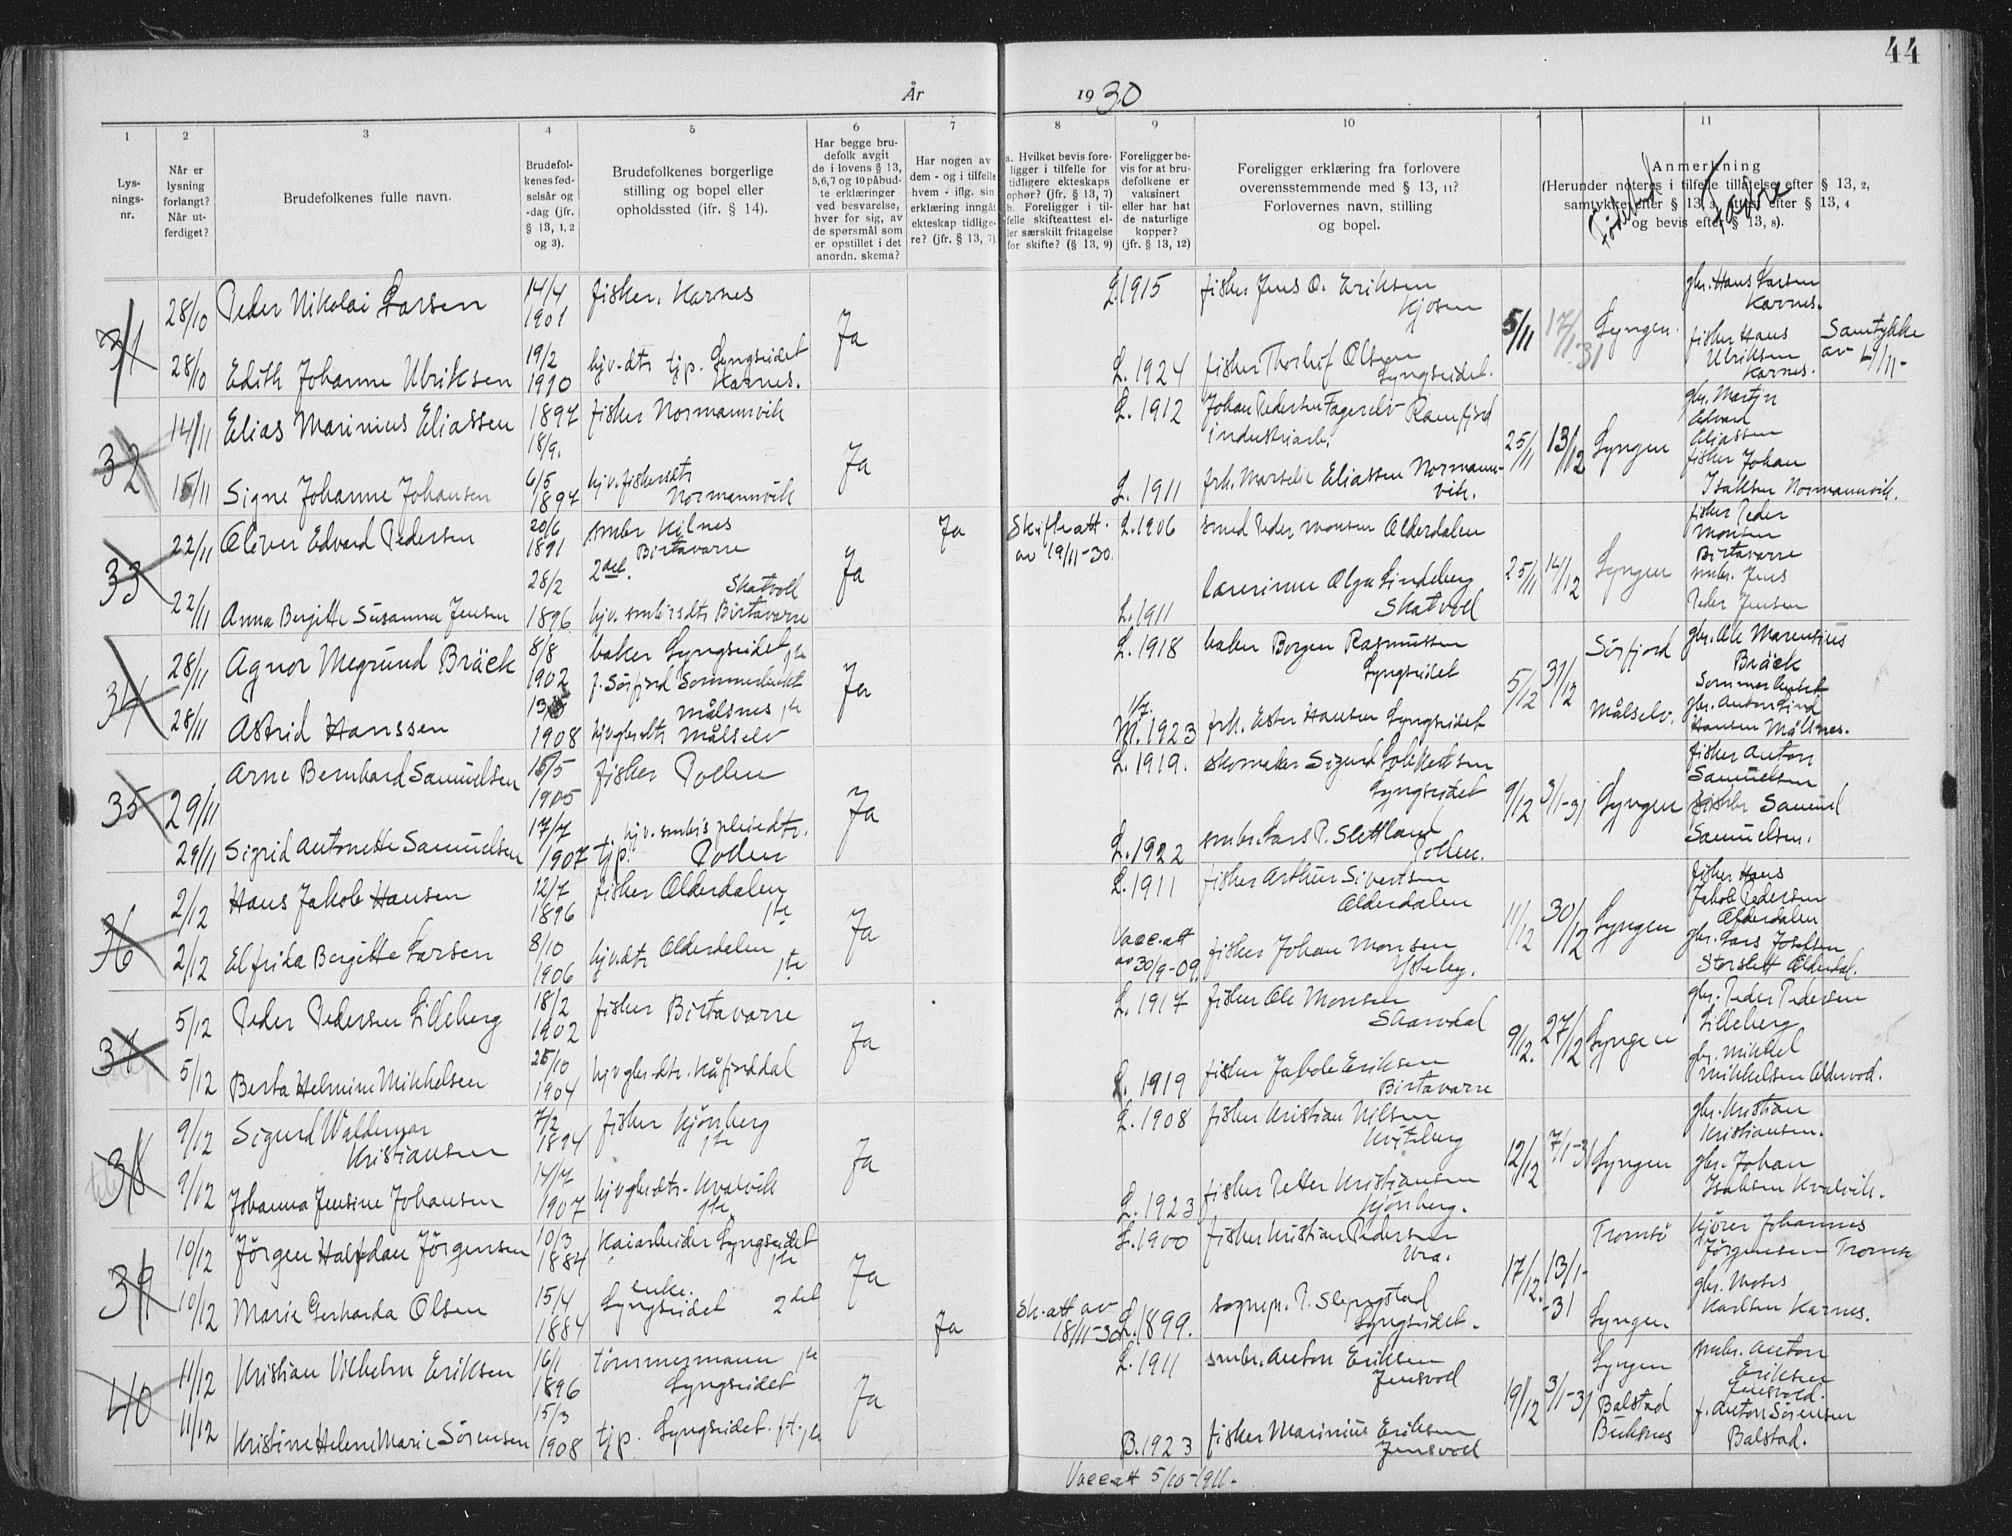 44
År 1930
1 2 3 4 5 6 7 8 9 10 11
Lysningsnr.
Når er lysning forlangt? Når utferdiget?
Brudefolkenes fulle navn.
Brudefolkenes fødselsår og -dag (jfr. § 13, 1, 2 og 3).
Brudefolkenes borgerlige stilling og bopel eller opholdssted (ifr. § 14).
Har begge brudefolk avgit de i lovens § 13, 5,6,7 og 10 påbudte erklæringer ved besvarelse, hver for sig, av de spørsmål som er opstillet i det anordn. skema?
Har nogen av dem - og i tilfelle hvem - iflg. sin erklæring inngåt ekteskap tidligere? (jfr. § 13, 7).
a. Hvilket bevis foreligger i tilfelle for tidligere ekteskaps ophør? (jfr. § 13, 7)
b. Foreligger i tilfelle skifteattest eller særskilt fritagelse for skifte? (§ 13, 9)
Foreligger bevis for at brudefolkene er vaksinert eller har hat de naturlige kopper? (jfr. § 13, 12)
Foreligger erklæring fra forlovere overensstemmende med § 13, 11? Forlovernes navn, stilling og bopel.
Anmerkning
(Herunder noteres i tilfelle tillatelse efter § 13, 2, samtykke efter § 13, 3, attest efter § 13, 4 og bevis efter § 13, 8).
Fødested
Fædre
31
28/10 Peder Nikolai Larsen 14/4 1901 fisker, Karnes Ja L. 1915 fisker Jens O. Eriksen Kjosen 5/11 17/1 31 Lyngen gbr. Hans Larsen Karnes.
28/10 Edith Johanne Ulriksen 19/2 1910 hjv. dtr tjp. Lyngseidet Karnes. L. 1924 fisker Thorleif Olsen Lyngseidet. fisker Hans Ulriksen Karnes. Samtykke av 4/11-
32
14/11 Elias Marinius Eliassen 1897 18/9. fisker Normannvik Ja L. 1912 Johan Pedersen Fagerelv Ramfjord industriarb. 25/11 13/12 Lyngen gbr. Martin Edvard Eliassen
15/11 Signe Johanne Johansen 6/5 1897 hjv. fiskersdtr Normannvik L. 1911 frk. Marselie Eliassen Normannvik. fisker Johan Isaksen Normannvik.
33
22/11 Oliver Edvard Pedersen 20/6 1891 smbr Kilnes Birtavarre 2det. Ja Ja Skifteatt. av 19/11-30. L. 1906 smed Peder Monsen Olderdalen 25/11 14/12 Lyngen fisker Peder Monsen Birtavarre
22/11 Anna Bergitte Susanna Jensen 28/2 1896. Skatvoll hjv. smbrsdtr Birtavarre L. 1911 lærerinne Olga Lindeberg Skatvoll smbr. Jens Peder Jensen
34
28/11 Agnor Megrund Bräck 8/8 1902 baker Lyngseidet 1te f. Sörfjord Sommerbukt Ja L. 1918 baker Borgen Rasmussen Lyngseidet 5/12 31/12 Sörfjord gbr. Ole Marensius Bräck Sommerbukt
28/11 Astrid Hanssen 1908 Målsnes 1te hjv gbrdtr Målselv M. 1923 frk. Ester Hansen Lyngseidet Målselv. gbr. Anton Lind Hansen Målsnes.
35
29/11 Arne Bernhard Samuelsen 15/5 1905 fisker Pollen Ja L. 1919. skomaker Sigurd Lyngseidet 9/12 3/1-31 Lyngen fisker Anton Samuelsen
29/11 Sigrid Antonette Samuelsen 17/7 1907 hjv. smbrs pleiedtr. tjp. Pollen L. 1922 smbr. Lars P. Slettland Pollen. Samuel Samuelsen.
36
2/12 Hans Jakob Hansen 12/7 1896 fisker Olderdalen 1te Ja L. 1911 fisker Arthur Sivertsen Olderdalen 11/12 30/12 Lyngen fisker Hans Jakob Pedersen Olderdalen
2/12 Elfrida Bergitte Larsen 8/10 1906 hjv. dtr Olderdalen 1te Vacc. att av 30/9-09. fisker Johan Monsen Ysteby. gbr. Lars Josefsen Storslett Olderdal.
37
5/12 Peder Pedersen Lilleberg 18/2 1902 fisker Birtavarre Ja L. 1917 fisker Ole Monsen Skardal 9/12. 27/12 Lyngen gbr. Peder Pedersen Lilleberg
5/12 Berta Helmine Mikkelsen 25/10 1904 hjv gbr. dtr. Kåfjorddal L. 1919 fisker Jakob Eriksen Birtavarre gbr. Mikkel Mikkelsen Oldervod.
38
9/12 Sigurd Waldemar Kristiansen 7/2 1894 fisker Kjönberg 1te Ja L. 1908 fisker Kristian Nilsen Kviteberg 12/12 7/1-31 Lyngen gbr. Kristian Kristiansen.
9/12 Johanna Jensine Johansen 14/7 1907 hjv gbr dtr. Kvalvik 1te L. 1923 fisker Petter Kristiansen Kjönberg. gbr. Johan Isaksen Kvalvik.
39
10/12 Jörgen Halfdan Jörgensen 10/3 1884 kaiarbeider Lyngseidet 1te Ja L. 1900 fisker Kristian Pedersen Ura. 17/12. 13/1- -31 Tromsö kjörer Johannes Jörgensen Tromsö
10/12 Marie Gerharda Olsen 15/4 1884 enke. Lyngseidet 2det Ja Sk. att av 18/11-30 L. 1899. sognepr. P. Slyngstad Lyngseidet. Lyngen gbr. Moses Karlsen Karnes.
40
11/12 Kristian Vilhelm Eriksen 16/1 1896 tömmermann 1te Lyngseidet Ja L. 1911 smbr. Anton Eriksen Jensvoll 19/12 3/1-31 Lyngen smbr. Anton Eriksen Jensvold.
11/12 Kristine Helene Marie Sörensen 15/3 1908 tjp. Lyngseidet. ft. 1te B. 1923 fisker Marinius Eriksen Jensvoll Balstad Buksnes f. Anton Sörensen Balstad.
Vacc. att 5/10-1911.